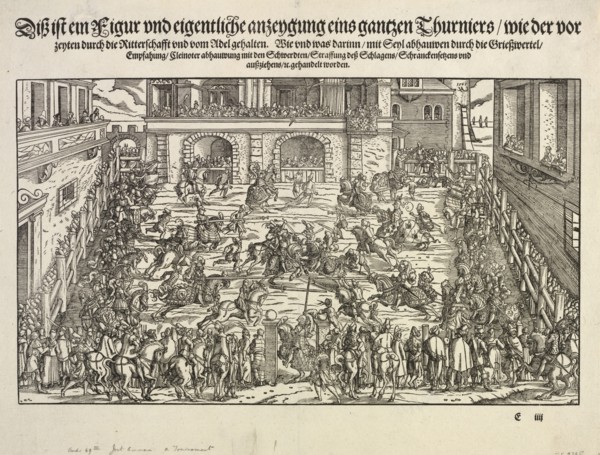 Diß ist ein Figur vnd eigentliche anzeygung eins gantzen Thurniers / wie der vor
zeyten durch die Ritterschafft vnd vom Adel gehalten. Wie vnd was darinn / mit Seyl abhauwen durch die Grießwertel /
Empfahung / Cleinoter abhauwung mit den Schwerdten / Straffung deß Schlagens / Schranckensetzens vnd
außziehens / ⁊c. gehandelt worden.
E iiij
Jost Amman a Tournament